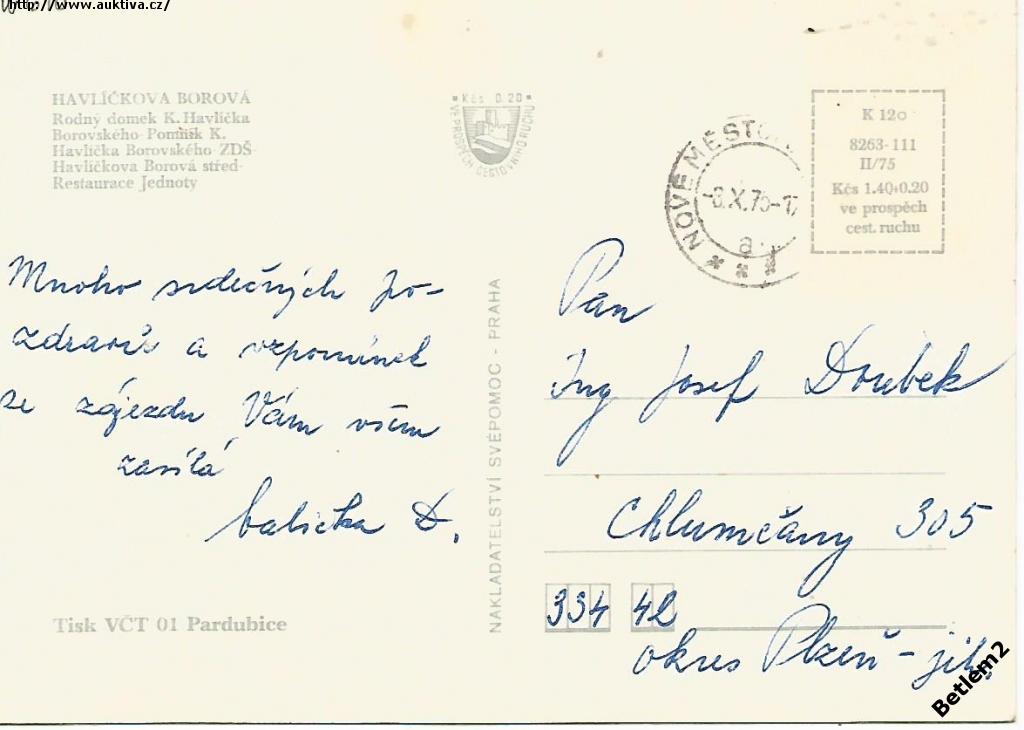 http://www.auktiva.cz/
HAVLÍČKOVA BOROVÁ
Rodný domek K. Havlíčka
Borovského-Pomník K.
Havlíčka Borovského-ZDŠ-
Havlíčkova Borová střed-
Restaurace Jednoty
Kčs 0.20
VE PROSPĚCH CESTOVNÍHO RUCHU
NOVÉ MĚSTO
X.75-17
a
K 120
8263-111
II/75
Kčs 1.40+0.20
ve prospěch
cest. ruchu
Mnoho srdečných po-
zdravů a vzpomínek
ze zájezdu Vám všem
zasílá
babička D.
NAKLADATELSTVÍ SVÉPOMOC - PRAHA
Pan
Ing Josef Doubek
Chlumčany 305
334 42
okres Plzeň - jih
Tisk VČT 01 Pardubice
Betlem2